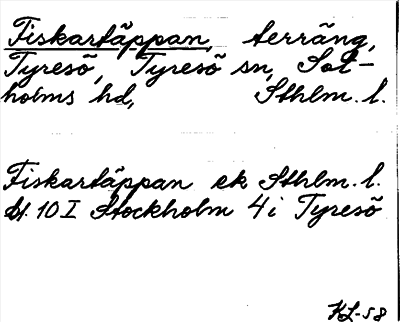 Fiskartäppan, terräng,
Tyresö, Tyresö sn, Sot-
holms hd, Sthlm. l.
Fiskartäppan ek Sthlm. l.
bl. 10 I Stockholm 4 i Tyresö
KL-58